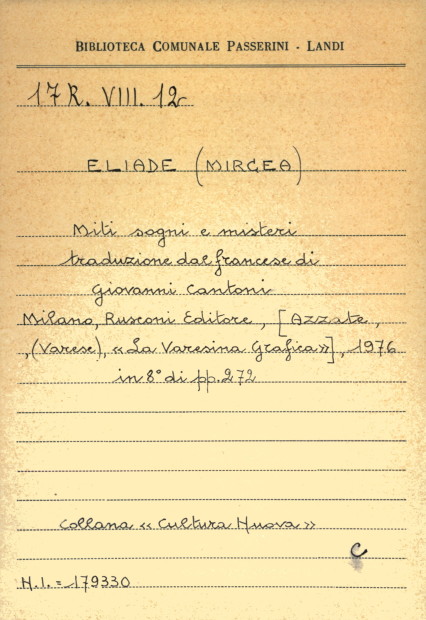 BIBLIOTECA COMUNALE PASSERINI - LANDI
17 R. VIII. 12
ELIADE (MIRCEA)
Miti sogni e misteri
traduzione dal francese di
Giovanni Cantoni
Milano, Rusconi Editore, [Azzate,
,(Varese), «La Varesina Grafica»], 1976
in 8° di pp. 272
Collana «Cultura Nuova»
C
N.I. = 179330